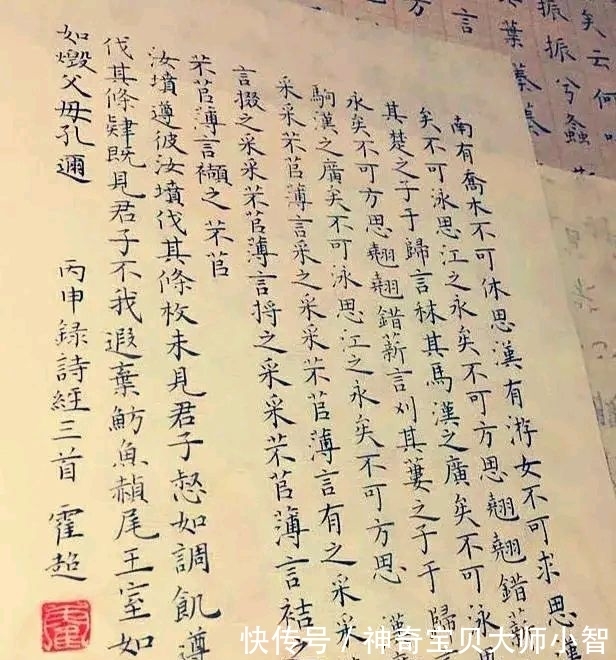 南有喬木不可休思漢有游女不可求思漢
矣不可泳思江之永矣不可方思翹翹錯薪
其楚之子于歸言秣其馬漢之廣矣不可泳
永矣不可方思翹翹錯薪言刈其蔞之子于歸
駒漢之廣矣不可泳思江之永矣不可方思 漢
采采芣苢薄言采之采采芣苢薄言有之采采
言掇之采采芣苢薄言捋之采采芣苢薄言袺之
芣苢薄言襭之 芣苢
汝墳遵彼汝墳伐其條枚未見君子惄如調飢遵
伐其條肄既見君子不我遐棄魴魚赬尾王室如
如燬父母孔邇 丙申録詩經三首 霍超
矣云何
振振兮螽
言
葉蓁蓁
快传号/神奇宝贝大师小智